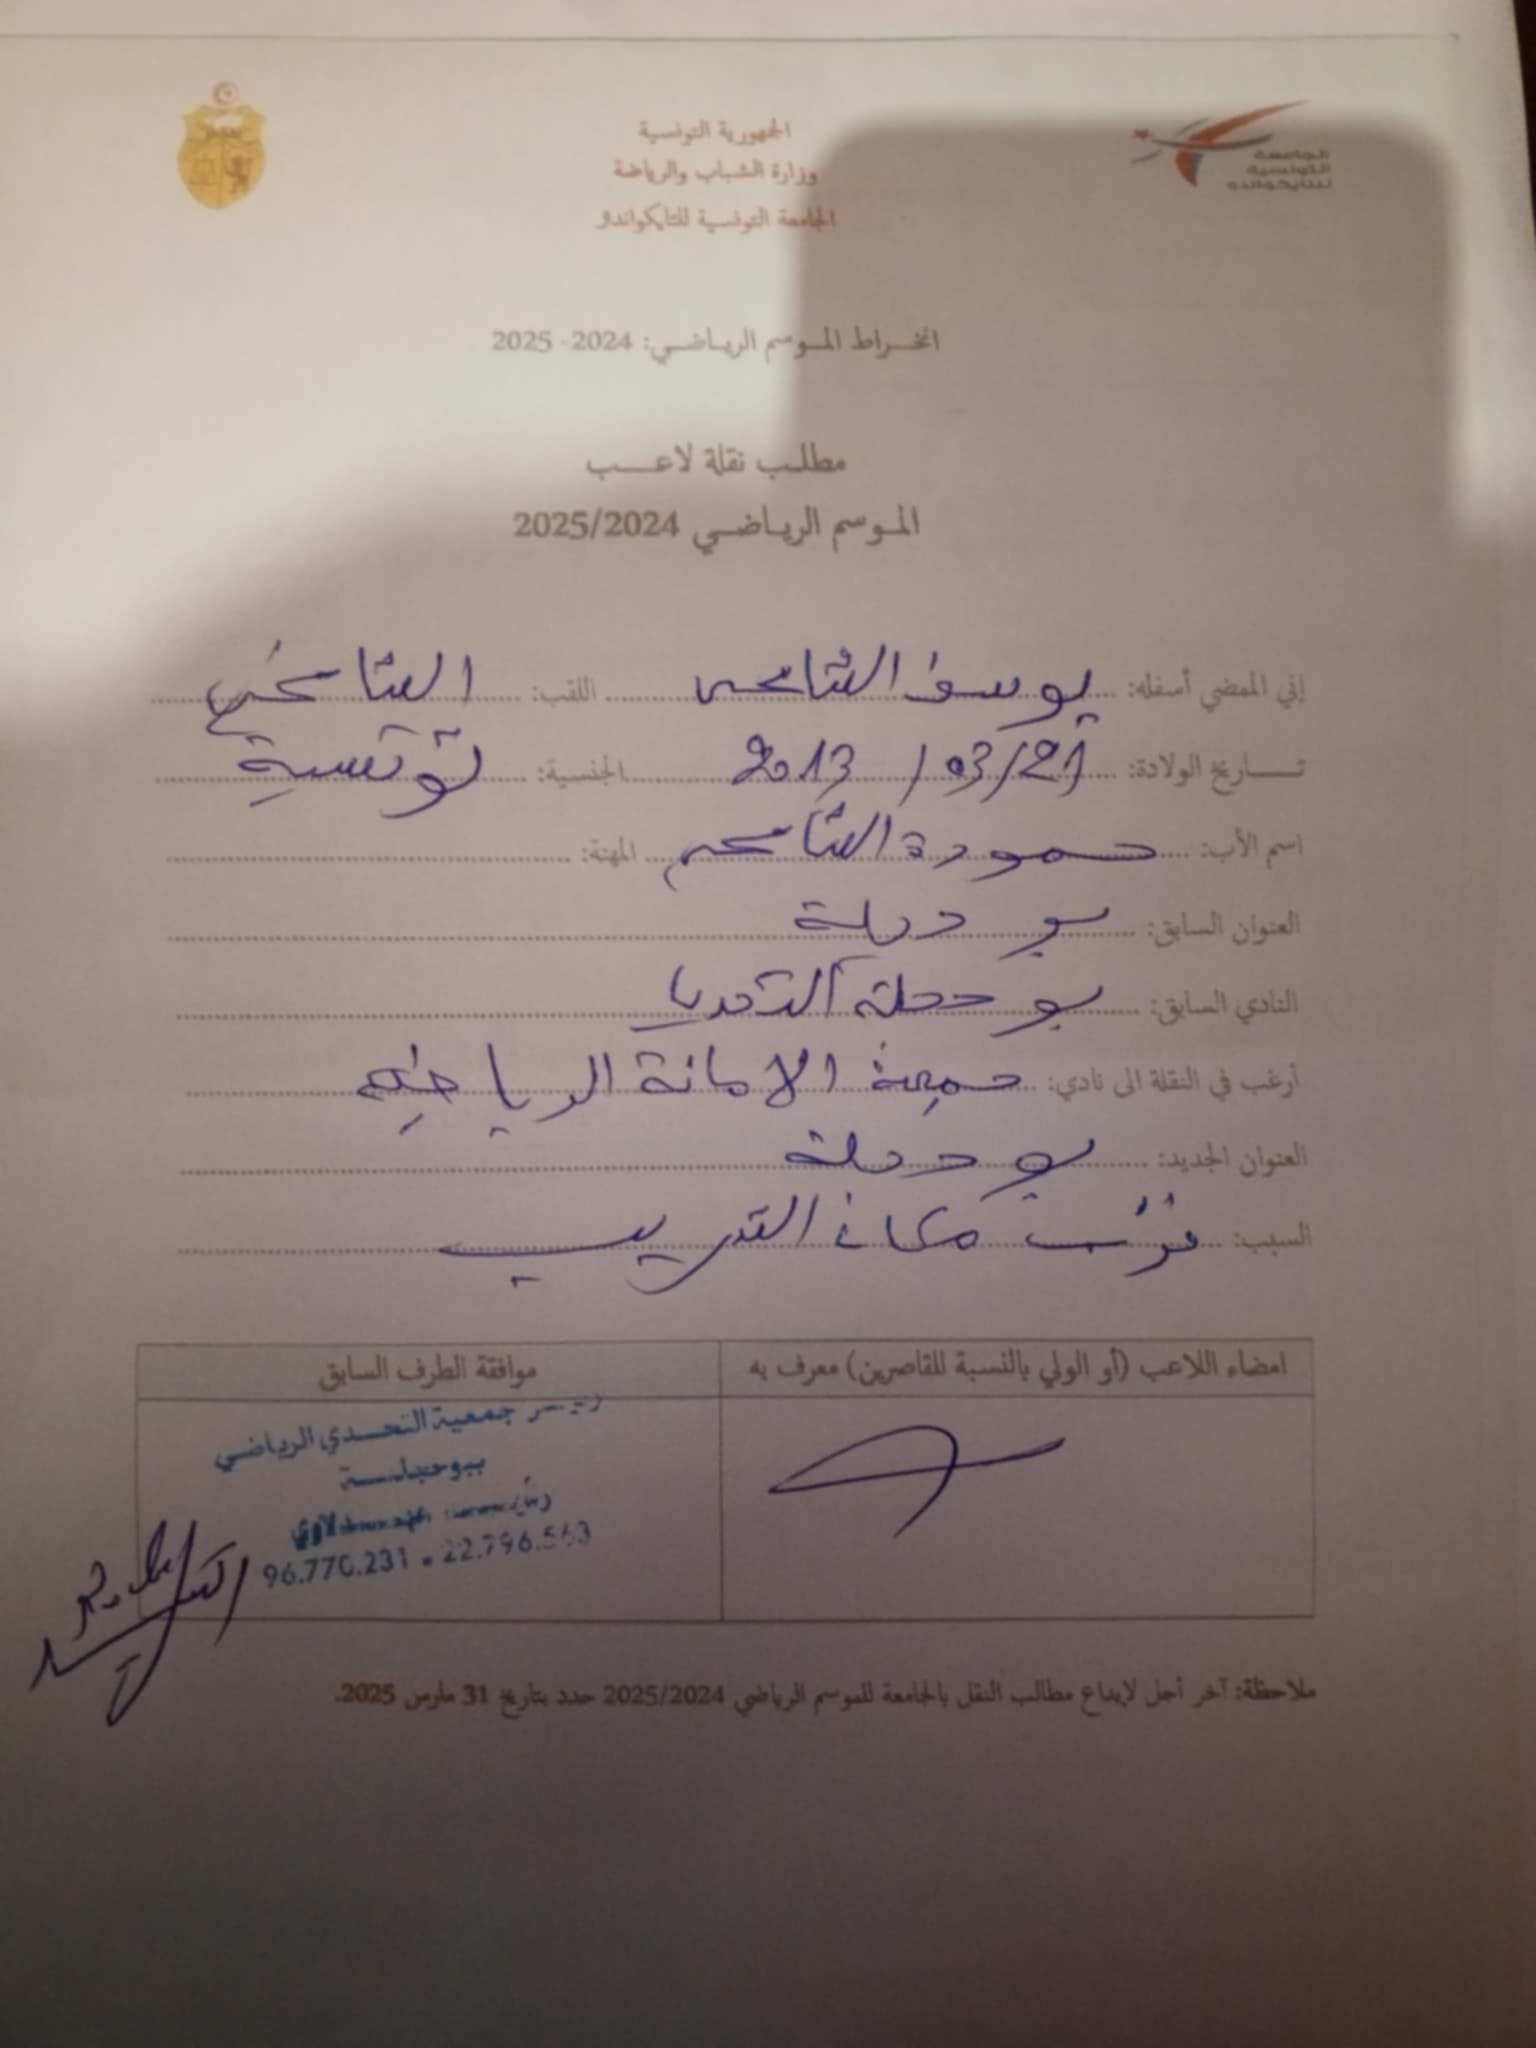 الجمهورية التونسية
وزارة الشباب والرياضة
الجامعة التونسية للتايكواندو
الجامعة
التونسية
للتايكواندو
انخراط الموسم الرياضي: 2024- 2025
مطلب نقلة لاعب
الموسم الرياضي 2025/2024
إني الممضي أسفله: يوسف الشامخي اللقب: الشامخي
تاريخ الولادة: 21/03/2013 الجنسية: تونسية
اسم الأب: حمودة الشامخي المهنة:
العنوان السابق: بوحجلة
النادي السابق: بوحجلة
أرغب في النقلة الى نادي: جمعية الامانة الرياضية
العنوان الجديد: بوحجلة
السبب: قرب مكان التدريب
امضاء اللاعب (أو الولي بالنسبة للقاصرين) معرف به
موافقة الطرف السابق
جمعية التحدي الرياضي
ببوحجلة
96.770.231 - 22.796.563
ملاحظة: آخر أجل لإيداع مطالب النقل بالجامعة للموسم الرياضي 2025/2024 حدد بتاريخ 31 مارس 2025.